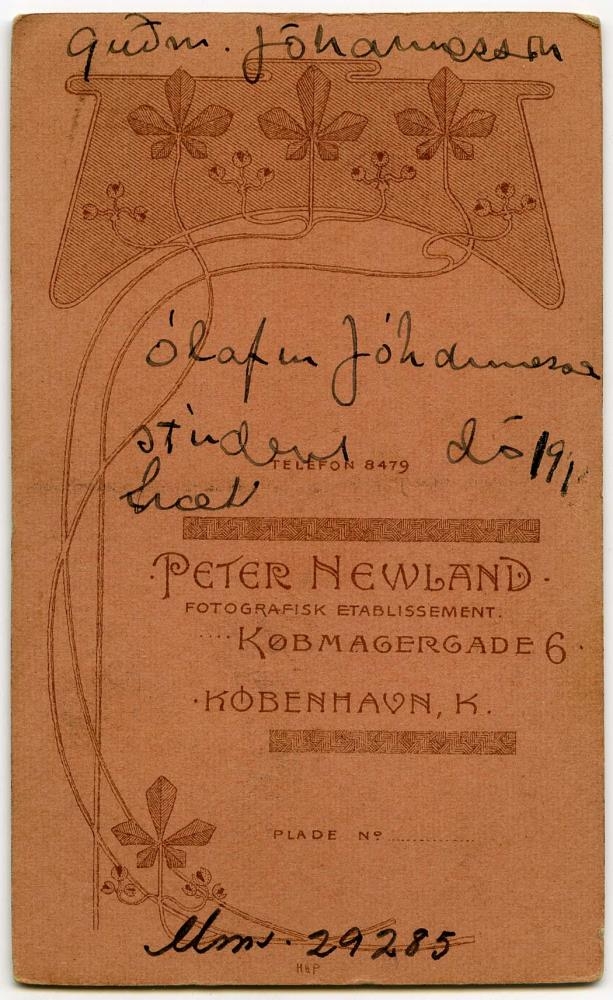 Guðm. Jóhannesson
Ólafur Jóhannesso
student dó
TELEFON 8479
PETER NEWLAND
FOTOGRAFISK ETABLISSEMENT.
KØBMAGERGADE 6
KÖBENHAVN, K.
PLADE Nº
Mms. 29285
H&P